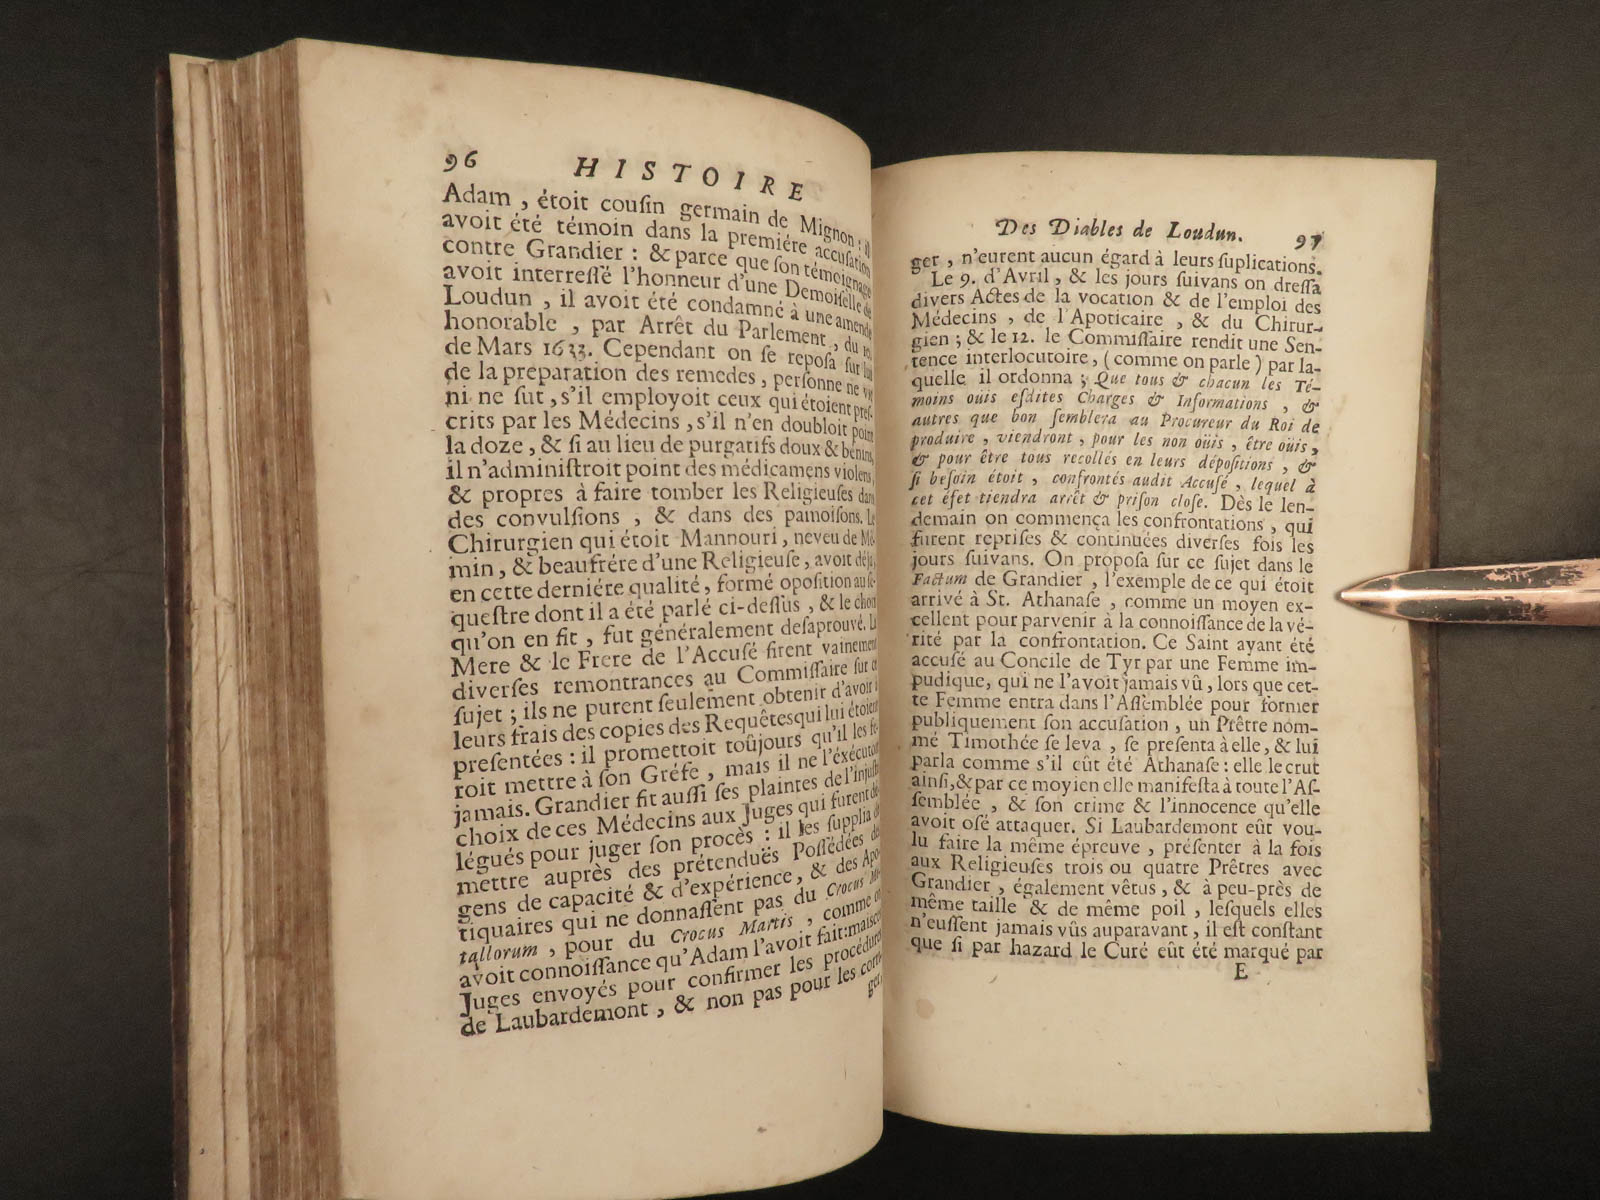 96 HISTOIRE
Adam , étoit couſin germain de Mignon : il
avoit été témoin dans la premiére accuſation
contre Grandier : & parce que ſon témoignage
avoit interreſſé l'honneur d'une Demoiſelle de
Loudun , il avoit été condamné à une amende
honorable , par Arrêt du Parlement , du
de Mars 1633. Cependant on ſe repoſa ſur lui
de la préparation des remedes , perſonne ne vit
ni ne ſut , s'il employoit ceux qui étoient preſ-
crits par les Médecins , s'il n'en doubloit point
la doze , & ſi au lieu de purgatifs doux & bénins,
il n'adminiſtroit point des médicamens violens,
& propres à faire tomber les Religieuſes dans
des convulſions , & dans des pamoiſons. Le
Chirurgien qui étoit Mannouri , neveu de Mê-
min , & beaufrére d'une Religieuſe , avoit déja,
en cette derniére qualité , formé opoſition au ſe-
queſtre dont il a été parlé ci-deſſus , & le choix
qu'on en fit , fut généralement deſaprouvé. La
Mere & le Frere de l'Accuſé firent vainement
diverſes remontrances au Commiſſaire ſur ce
ſujet ; ils ne purent ſeulement obtenir d'avoir à
leurs frais des copies des Requêtes qui lui étoient
preſentées : il promettoit toûjours qu'il les fe-
roit mettre à ſon Gréfe , mais il ne l'éxécutoit
jamais. Grandier fit auſſi ſes plaintes de l'injuſte
choix de ces Médecins aux Juges qui furent dé-
légués pour juger ſon procès : il les ſupplia de
mettre auprès des prétenduës Poſſédées des
gens de capacité & d'expérience, & des Apo-
tiquaires qui ne donnaſſent pas du Crocus Me-
tallorum , pour du Crocus Martis , comme on
avoit connoiſſance qu'Adam l'avoit fait: mais ces
Juges envoyés pour confirmer les procédures
de Laubardemont , & non pas pour les corri-
ger,
Des Diables de Loudun. 97
ger , n'eurent aucun égard à leurs ſuplications.
Le 9. d'Avril , & les jours ſuivans on dreſſa
divers Actes de la vocation & de l'emploi des
Médecins , de l'Apoticaire , & du Chirur-
gien ; & le 12. le Commiſſaire rendit une Sen-
tence interlocutoire, ( comme on parle ) par la-
quelle il ordonna ; Que tous & chacun les Té-
moins oüis eſdites Charges & Informations , &
autres que bon ſemblera au Procureur du Roi de
produire , viendront , pour les non oüis , être oüis ,
& pour être tous recollés en leurs dépoſitions , &
ſi beſoin étoit , confrontés audit Accuſé , lequel à
cet éfet tiendra arrêt & priſon cloſe. Dès le len-
demain on commença les confrontations , qui
furent repriſes & continuées diverſes fois les
jours ſuivans. On propoſa ſur ce ſujet dans le
Factum de Grandier , l'exemple de ce qui étoit
arrivé à St. Athanaſe , comme un moyen ex-
cellent pour parvenir à la connoiſſance de la vé-
rité par la confrontation. Ce Saint ayant été
accuſé au Concile de Tyr par une Femme im-
pudique, qui ne l'avoit jamais vû , lors que cet-
te Femme entra dans l'Aſſemblée pour former
publiquement ſon accuſation , un Prêtre nom-
mé Timothée ſe leva , ſe preſenta à elle, & lui
parla comme s'il eût été Athanaſe : elle le crut
ainſi, & par ce moyen elle manifeſta à toute l'Aſ-
ſemblée , & ſon crime & l'innocence qu'elle
avoit oſé attaquer. Si Laubardemont eût vou-
lu faire la même épreuve , préſenter à la fois
aux Religieuſes trois ou quatre Prêtres avec
Grandier , également vêtus , & à peu-près de
même taille & de même poil , leſquels elles
n'euſſent jamais vûs auparavant , il eſt conſtant
que ſi par hazard le Curé eût été marqué par
E